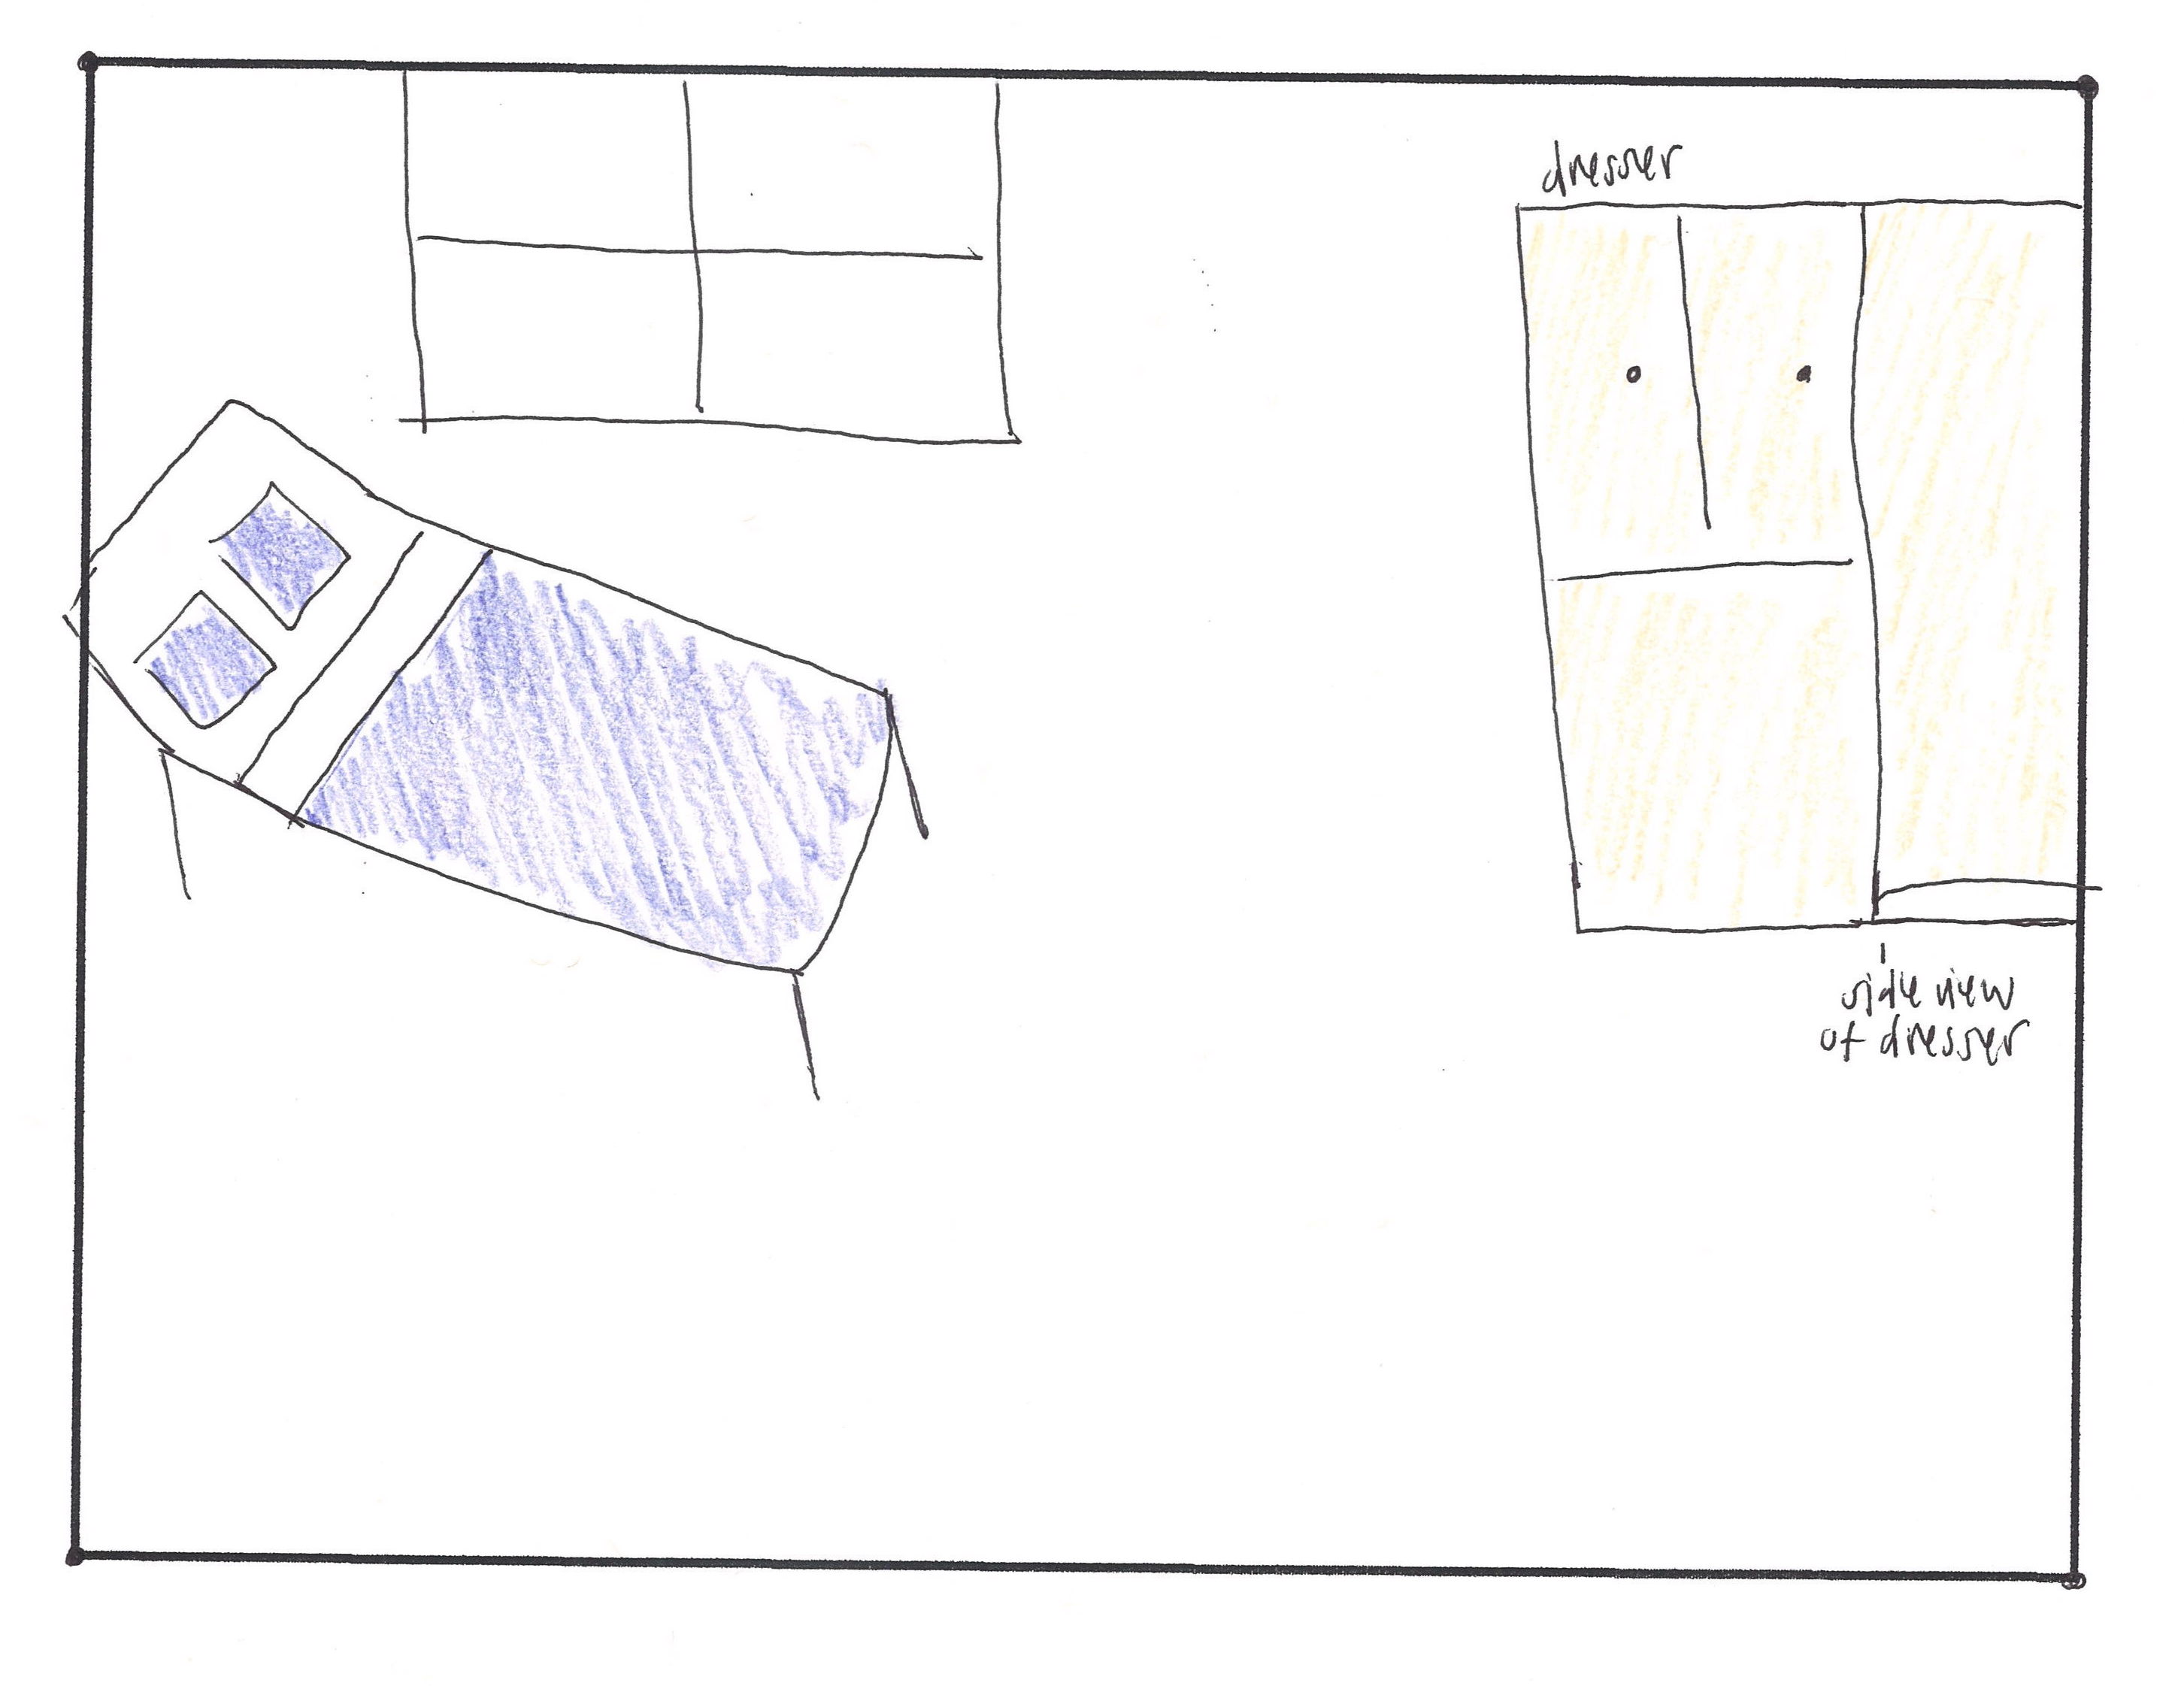 dresser
side view
of dresser